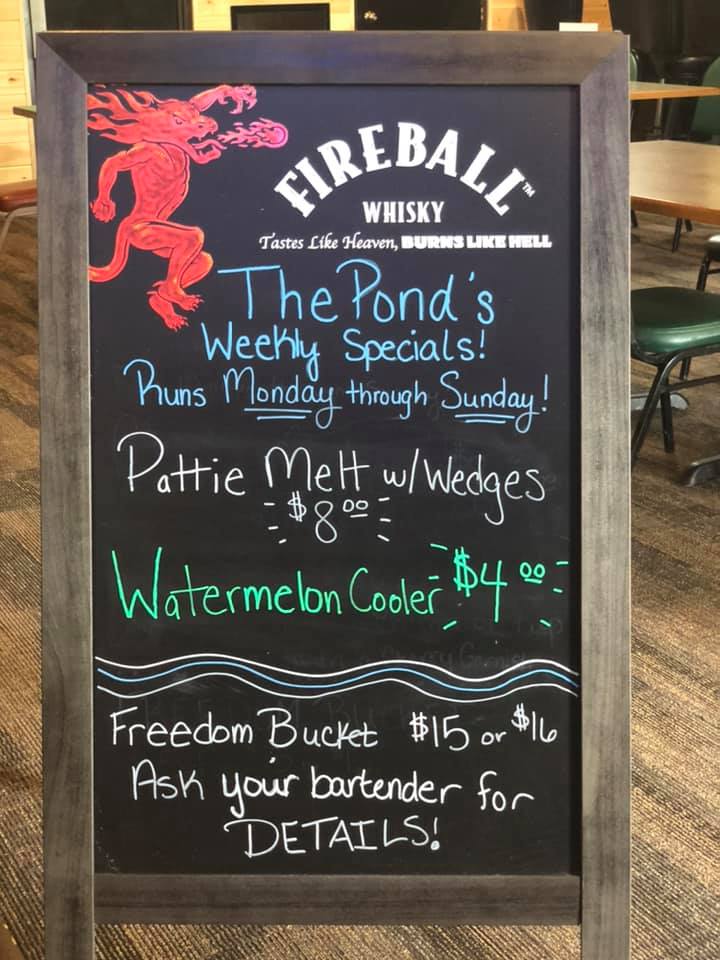 FIREBALL™
WHISKY
Tastes Like Heaven, BURNS LIKE HELL
The Pond's
Weekly Specials!
Runs Monday through Sunday!
Pattie Melt w/Wedges
$8.00
Watermelon Cooler $4.00
Freedom Bucket $15 or $16
Ask your bartender for
DETAILS!